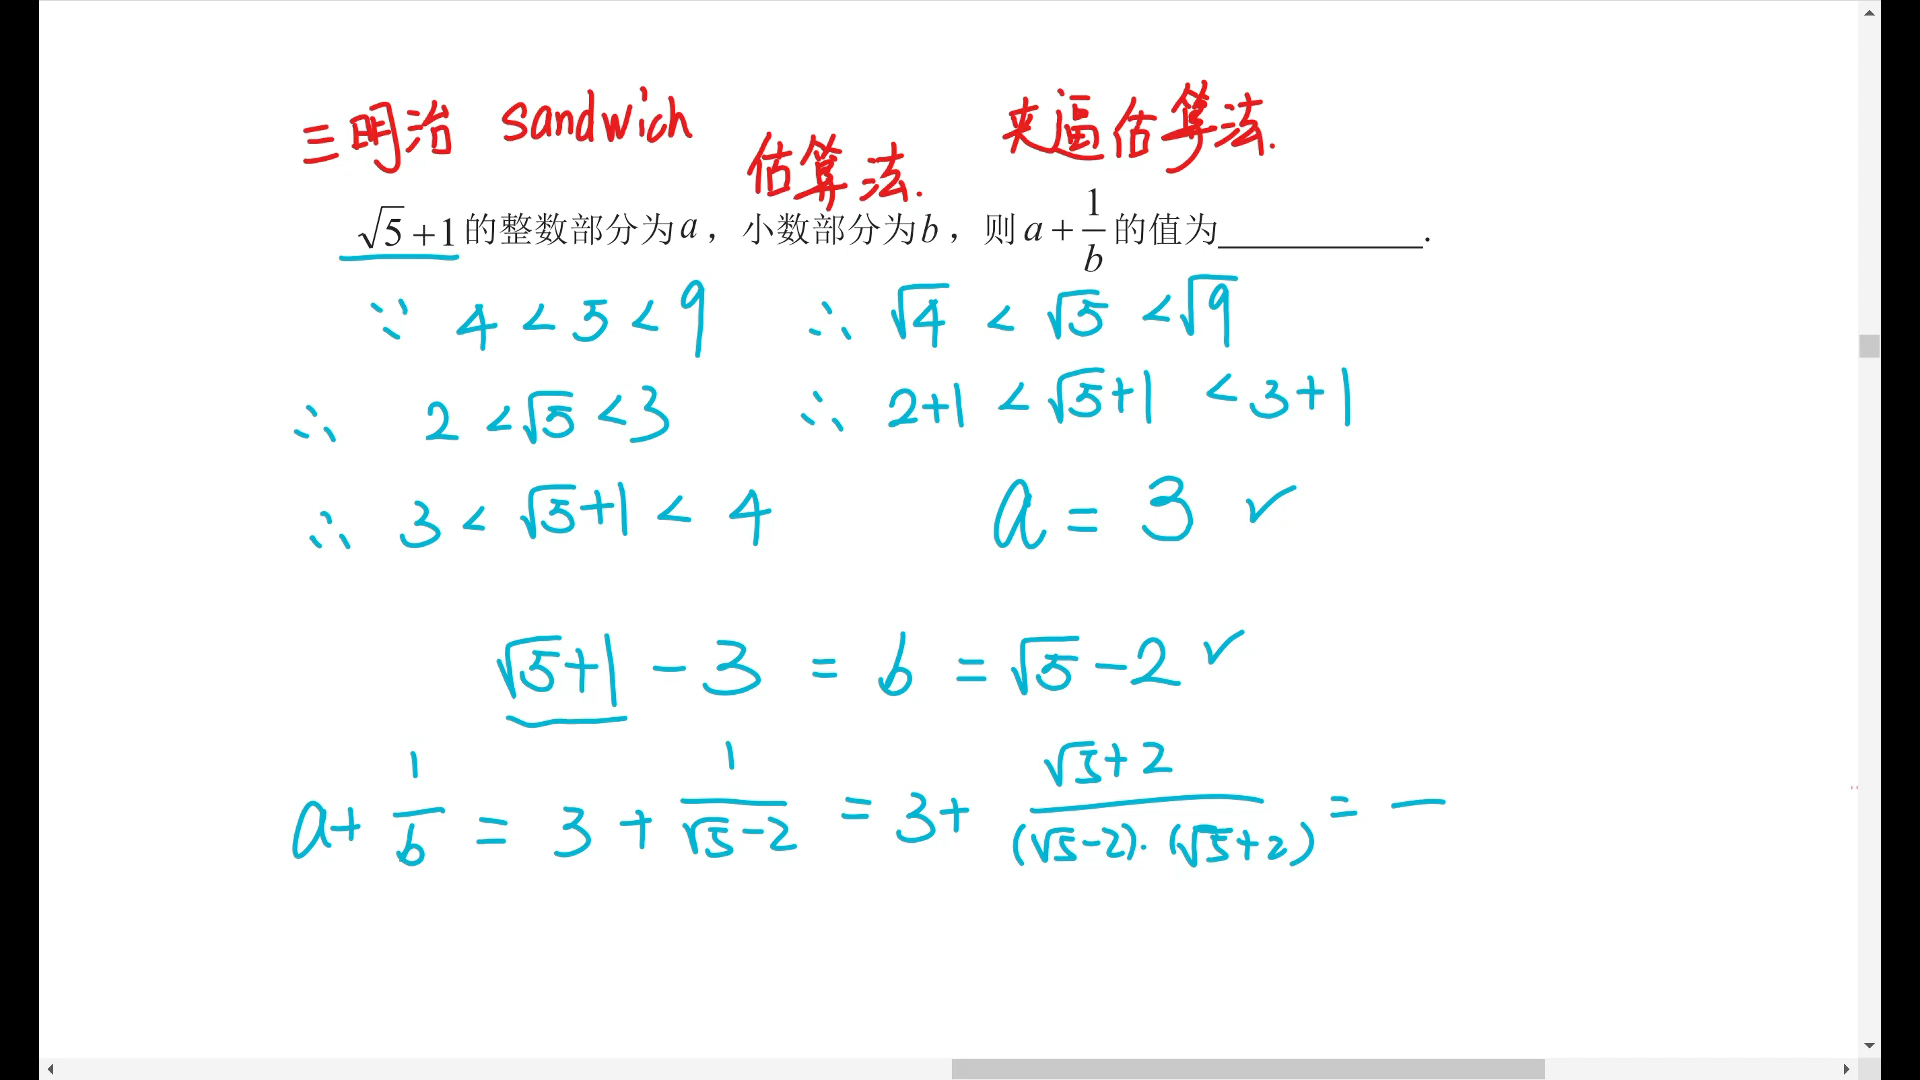 三明治 sandwich 估算法. 夹逼估算法.
√5+1的整数部分为a，小数部分为b，则a+1/b的值为__________.
∵ 4<5<9 ∴ √4<√5<√9
∴ 2<√5<3 ∴ 2+1<√5+1<3+1
∴ 3<√5+1<4 a=3 ✓
√5+1-3=b=√5-2 ✓
a+1/b=3+1/(√5-2)=3+(√5+2)/((√5-2)·(√5+2))=—